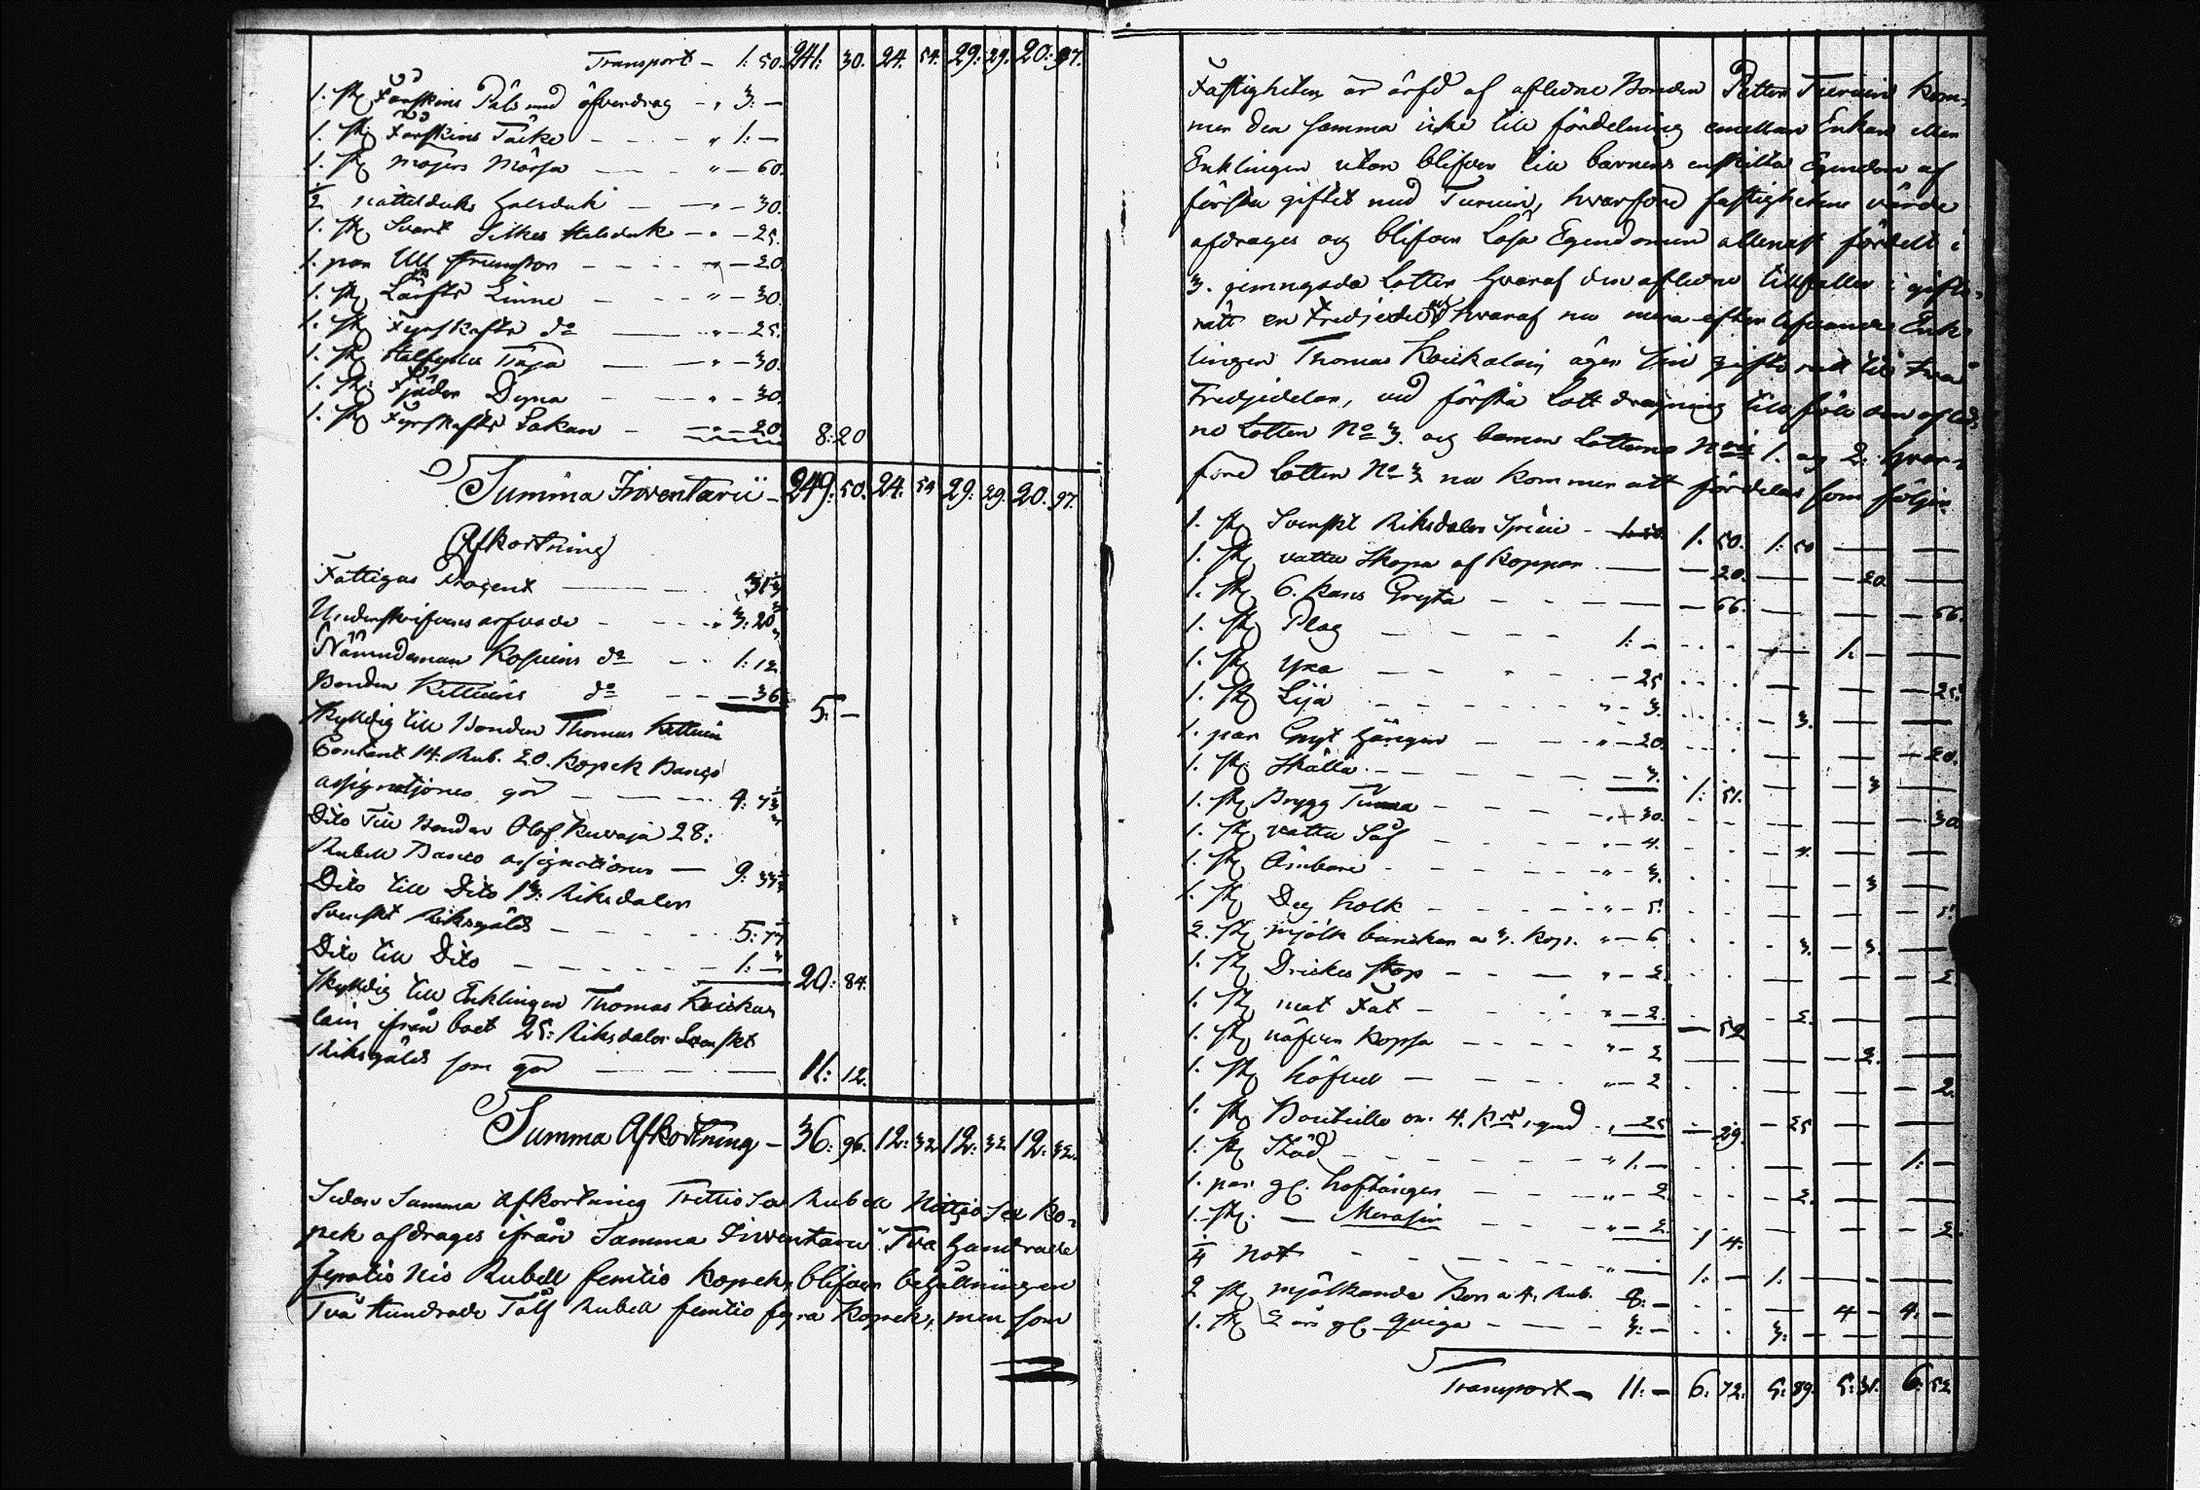 Transport – 1: 50. 241: 30. 24. 54. 29: 29. 20: 97.
1. st Fårskins Päls med öfverdrag – " 3: –
1. st Fårskins Täcke – – – " 1: –
1. st Mössa – – – " – 60.
½ nättelduks halsduk – – " – 30.
1. st Svart Silkes Halsduk – " – 25.
1. par Ull strumpor – – – " – 20.
1. st Lärfts Linne – – " – 30.
1. st Fyrskafts do – " – 25.
1. st Halfylle Tröja – " – 30.
1. st Fjäder Dyna – – " – 30.
1. st Fyrskafts Lakan – – " – 20 8: 20
Summa Inventarii – 249: 50. 24: 54 29: 29. 20. 97.
Afkortning
Fattigas Procent
Underskrifvares arfvode – – – " 3: 20
Nämndeman do – – 1: 12
Bonden do – – – 36 5: –
Skyldig till Bonden Thomas
Contant 14. Rub. 20. Kopek Banco
assignationer gör – – – 4: 73
Dito Till Bonden Olof Kuvaja 28:
Rubel Banco assignationer – 9: 33
Dito till Dito 13: Riksdaler
Svenskt Riksgälds – – – 5: 77
Dito till Dito – – – – 1: – 20: 84.
Skyldig till Enklingen Thomas Keicka
lain ifrån boet 25: Riksdaler Svenskt
Riksgälds som gör – – – 11: 12.
Summa Afkortning – 36: 96. 12: 32 12: 32 12: 32.
Sedan Summa Afkortning Trettio Sex Rubel Nittio Sex Ko-
pek afdrages ifrån Summa Inventarii Två hundrade
fyratio Nio Rubel femtio kopek, blifver behållningen
Två Hundrade Tolf Rubel femtio fyra Kopek, men som
Fastigheten är ärfd af aflidne Bonden Petter Turuin kom-
mer den samma icke till fördelning emellan Enkan eller
Enklingen utan blifver till barnens enskilta Egendom af
första giftet med Turuin, hvarföre fastighetens värde
afdrages og blifver Lösa Egendomen allenast fördelt i
3. jemngoda Lotter hvaraf den aflidne tillfaller i gifto-
rätt en Tredjedel, hvaraf nu mera efterlefvande Enk-
lingen Thomas Keickalain äger sin giftorätt till två
Tredjedelar, vid första Lottdragning tillföll den aflid-
ne Lotten No 3. og barnen Lotterne 1. og 2. hvar-
före Lotten No 3 nu kommer att fördelas som följer
1. st Svenskt Riksdaler Specie – 1: 50. 1. 50. 1: 50 – –
1. st vattu Skopa af Koppar – – 20. – – 20 –
1. st 6. Kans Gryta – – – – 66. – – – 66.
1. st Plog – – – – 1: – – 1: – –
1. st yxa – – – – 25 – – – 25.
1. st Lija – – – " – 3. – 3. – –
1. par Gryt hängen – – " – 20. – – – 20.
1. st Skälla – – – – 3. 1: 51. – – 3 –
1. st Brygg Tunna – – – 30. – – – 30
1. st vattu Så – – – " – 4. – 4. – –
1. st Ämbare – – – " – 3. – – 3 –
1. st Deg holk – – – " – 5 – – – 5
2. st mjölk bunckar a 3. Kop. " – 6 – 3. – 3. –
1. st Drickes stop – – – " – 2. – – – 2
1. st mat Fat – – – 2. – 52 – 2. – –
1. st näfver Koppa – – – " – 2 – – 2. –
1. st höfvel – – – " – 2 – – – 2.
1. st Bouteille om 4. – 25 – 29. – 25 – –
1. st Städ – – – – " 1: – – – 1: –
1. par gl. hoftänger – – – " – 2. – 2. – –
1. st – – – – " – 2 1 4. – – 2.
¼ Not – – – – " – 1: – 1: – –
2 st mjölkande Kor a 4. Rub. 8: – – 4 – 4: –
1. st 2 års gl. Qviga – – – 3: – 3: – – –
Transport – 11: – 6: 72. 5: 89. 5: 31. 6: 52